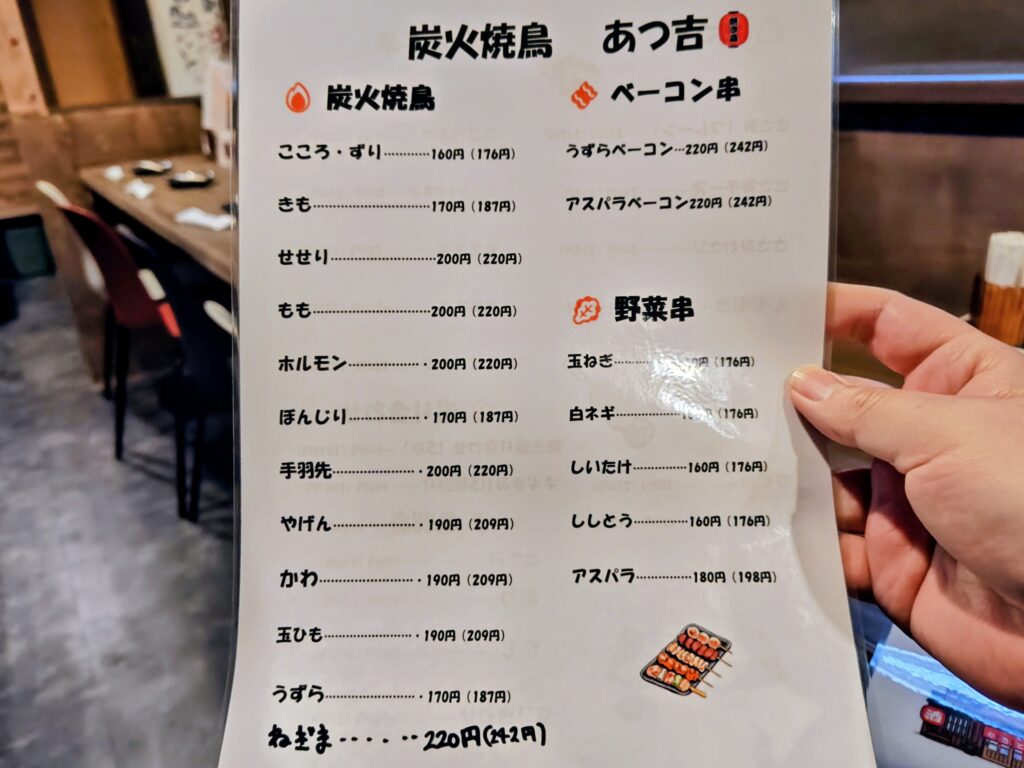 炭火焼鳥 あつ吉
炭火焼鳥
こころ・ずり…………160円（176円）
きも……………………170円（187円）
せせり…………………200円（220円）
もも……………………200円（220円）
ホルモン………………・200円（220円）
ぼんじり………………・170円（187円）
手羽先…………………・200円（220円）
やげん…………………・190円（209円）
かわ……………………・190円（209円）
玉ひも…………………・190円（209円）
うずら…………………・170円（187円）
ねぎま・・・・・・220円（242円）
ベーコン串
うずらベーコン…220円（242円）
アスパラベーコン220円（242円）
野菜串
玉ねぎ…………（176円）
白ネギ…………（176円）
しいたけ……………160円（176円）
ししとう……………160円（176円）
アスパラ……………180円（198円）